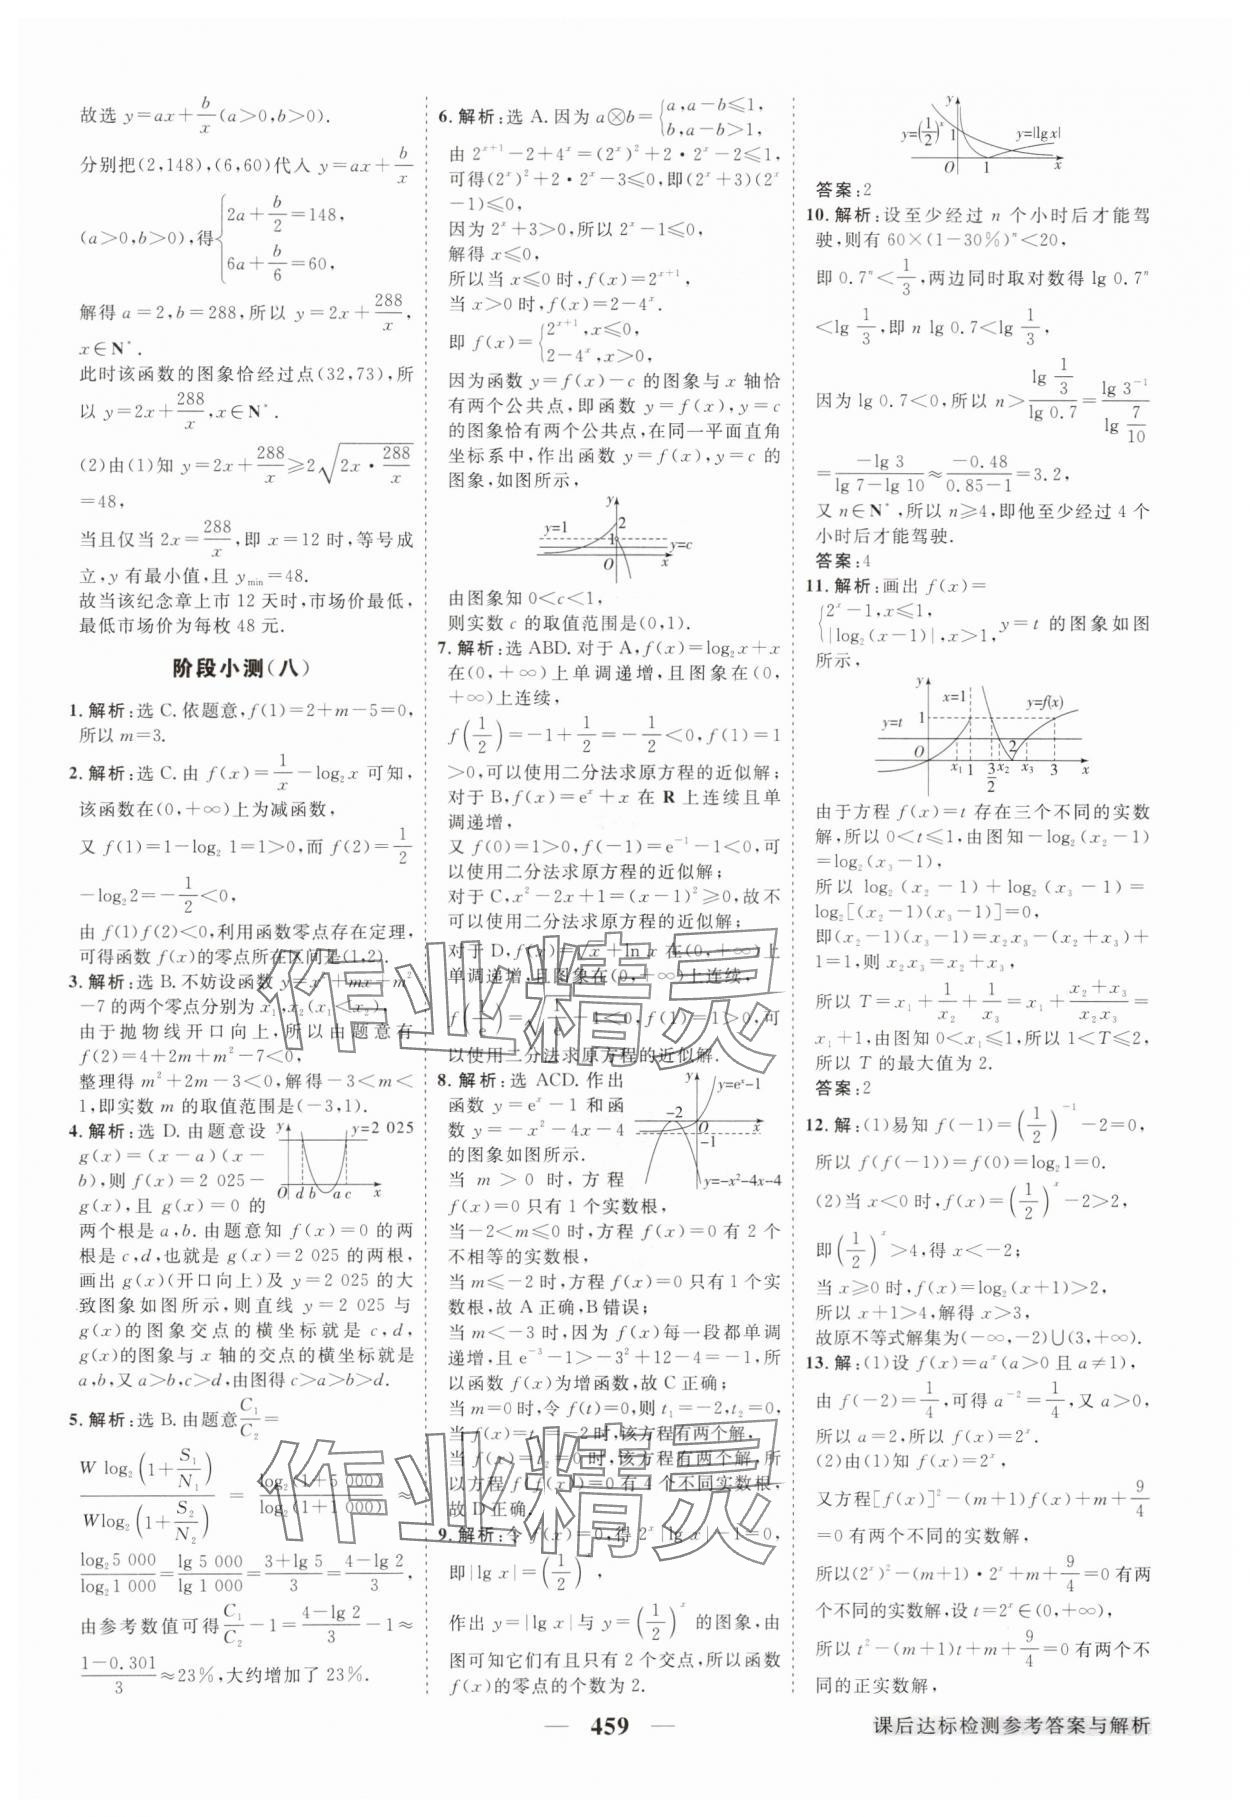 故选 y=ax+b/x(a>0,b>0).
分别把(2,148),(6,60)代入 y=ax+b/x
(a>0,b>0),得{2a+b/2=148,
6a+b/6=60,
解得 a=2,b=288,所以 y=2x+288/x,
x∈N*.
此时该函数的图象恰经过点(32,73),所
以 y=2x+288/x,x∈N*.
(2)由(1)知 y=2x+288/x≥2√(2x·288/x)
=48,
当且仅当 2x=288/x,即 x=12 时,等号成
立,y 有最小值,且 ymin=48.
故当该纪念章上市 12 天时,市场价最低,
最低市场价为每枚 48 元.
阶段小测(八)
1. 解析:选 C.依题意,f(1)=2+m-5=0,
所以 m=3.
2. 解析:选 C.由 f(x)=1/x-log₂x 可知,
该函数在(0,+∞)上为减函数,
又 f(1)=1-log₂ 1=1>0,而 f(2)=1/2
-log₂2=-1/2<0,
由 f(1)f(2)<0,利用函数零点存在定理,
可得函数 f(x)的零点所在区间是(1,2).
3. 解析:选 B.不妨设函数 y=x²+mx+m²
-7 的两个零点分别为 x₁,x₂(x₁<x₂).
由于抛物线开口向上,所以由题意有
f(2)=4+2m+m²-7<0,
整理得 m²+2m-3<0,解得-3<m<
1,即实数 m 的取值范围是(-3,1).
4. 解析:选 D.由题意设
g(x)=(x-a)(x-
b),则 f(x)=2 025-
g(x),且 g(x)=0 的
y y=2 025
O d b a c x
两个根是 a,b.由题意知 f(x)=0 的两
根是 c,d,也就是 g(x)=2 025 的两根,
画出 g(x)(开口向上)及 y=2 025 的大
致图象如图所示,则直线 y=2 025 与
g(x)的图象交点的横坐标就是 c,d,
g(x)的图象与 x 轴的交点的横坐标就是
a,b,又 a>b,c>d,由图得 c>a>b>d.
5. 解析:选 B.由题意 C₁/C₂=
W log₂(1+S₁/N₁)/Wlog₂(1+S₂/N₂) = log₂(1+5 000)/log₂(1+1 000) ≈
log₂5 000/log₂1 000=lg 5 000/lg 1 000=(3+lg 5)/3=(4-lg 2)/3,
由参考数值可得C₁/C₂-1=(4-lg 2)/3-1≈
(1-0.301)/3≈23%,大约增加了 23%.
6. 解析:选 A.因为 a⊗b={a,a-b≤1,
b,a-b>1,
由 2ˣ⁺¹-2+4ˣ=(2ˣ)²+2·2ˣ-2≤1,
可得(2ˣ)²+2·2ˣ-3≤0,即(2ˣ+3)(2ˣ
-1)≤0,
因为 2ˣ+3>0,所以 2ˣ-1≤0,
解得 x≤0,
所以当 x≤0 时,f(x)=2ˣ⁺¹,
当 x>0 时,f(x)=2-4ˣ.
即 f(x)={2ˣ⁺¹,x≤0,
2-4ˣ,x>0,
因为函数 y=f(x)-c 的图象与 x 轴恰
有两个公共点,即函数 y=f(x),y=c
的图象恰有两个公共点,在同一平面直角
坐标系中,作出函数 y=f(x),y=c 的
图象,如图所示,
y
y=1 2
1 y=c
O x
由图象知 0<c<1,
则实数 c 的取值范围是(0,1).
7. 解析:选 ABD.对于 A,f(x)=log₂x+x
在(0,+∞)上单调递增,且图象在(0,
+∞)上连续,
f(1/2)=-1+1/2=-1/2<0,f(1)=1
>0,可以使用二分法求原方程的近似解;
对于 B,f(x)=eˣ+x 在 R 上连续且单
调递增,
又 f(0)=1>0,f(-1)=e⁻¹-1<0,可
以使用二分法求原方程的近似解;
对于 C,x²-2x+1=(x-1)²≥0,故不
可以使用二分法求原方程的近似解;
对于 D,f(x)=x+ln x 在(0,+∞)上
单调递增,且图象在(0,+∞)上连续,
f(1/e)=1/e-1<0,f(1)=1>0,可
以使用二分法求原方程的近似解.
8. 解析:选 ACD.作出
函数 y=eˣ-1 和函
数 y=-x²-4x-4
的图象如图所示.
y y=eˣ-1
-2 O x
-1
y=-x²-4x-4
当 m>0 时,方程
f(x)=0 只有 1 个实数根,
当-2<m≤0 时,方程 f(x)=0 有 2 个
不相等的实数根,
当 m≤-2 时,方程 f(x)=0 只有 1 个实
数根,故 A 正确,B 错误;
当 m<-3 时,因为 f(x)每一段都单调
递增,且 e⁻³-1>-3²+12-4=-1,所
以函数 f(x)为增函数,故 C 正确;
当 m=0 时,令 f(t)=0,则 t₁=-2,t₂=0,
当 f(x)=t₁=-2 时,该方程有两个解,
当 f(x)=t₂=0 时,该方程有两个解,所
以方程 f(f(x))=0 有 4 个不同实数根,
故 D 正确.
9. 解析:令 f(x)=0,得 2ˣ|lg x|-1=0,
即|lg x|=(1/2)ˣ,
作出 y=|lg x|与 y=(1/2)ˣ 的图象,由
图可知它们有且只有 2 个交点,所以函数
f(x)的零点的个数为 2.
y
y=(1/2)ˣ 1 y=|lg x|
O 1 x
答案:2
10. 解析:设至少经过 n 个小时后才能驾
驶,则有 60×(1-30%)ⁿ<20,
即 0.7ⁿ<1/3,两边同时取对数得 lg 0.7ⁿ
<lg 1/3,即 n lg 0.7<lg 1/3,
因为 lg 0.7<0,所以 n>lg (1/3)/lg 0.7=lg 3⁻¹/lg (7/10)
=-lg 3/(lg 7-lg 10)≈-0.48/(0.85-1)=3.2,
又 n∈N*,所以 n≥4,即他至少经过 4 个
小时后才能驾驶.
答案:4
11. 解析:画出 f(x)=
{2ˣ-1,x≤1,
|log₂(x-1)|,x>1, y=t 的图象如图
所示,
y x=1 y=f(x)
y=t 1
2
O x₁ 1 3/2 x₂ x₃ 3 x
由于方程 f(x)=t 存在三个不同的实数
解,所以 0<t≤1,由图知-log₂(x₂-1)
=log₂(x₃-1),
所以 log₂(x₂-1)+log₂(x₃-1)=
log₂[(x₂-1)(x₃-1)]=0,
即(x₂-1)(x₃-1)=x₂x₃-(x₂+x₃)+
1=1,则 x₂x₃=x₂+x₃,
所以 T=x₁+1/x₂+1/x₃=x₁+(x₂+x₃)/x₂x₃=
x₁+1,由图知 0<x₁≤1,所以 1<T≤2,
所以 T 的最大值为 2.
答案:2
12. 解:(1)易知 f(-1)=(1/2)⁻¹-2=0,
所以 f(f(-1))=f(0)=log₂1=0.
(2)当 x<0 时,f(x)=(1/2)ˣ-2>2,
即(1/2)ˣ>4,得 x<-2;
当 x≥0 时,f(x)=log₂(x+1)>2,
所以 x+1>4,解得 x>3,
故原不等式解集为(-∞,-2)∪(3,+∞).
13. 解:(1)设 f(x)=aˣ(a>0 且 a≠1),
由 f(-2)=1/4,可得 a⁻²=1/4,又 a>0,
所以 a=2,所以 f(x)=2ˣ.
(2)由(1)知 f(x)=2ˣ,
又方程[f(x)]²-(m+1)f(x)+m+9/4
=0 有两个不同的实数解,
所以(2ˣ)²-(m+1)·2ˣ+m+9/4=0 有两
个不同的实数解,设 t=2ˣ∈(0,+∞),
所以 t²-(m+1)t+m+9/4=0 有两个不
同的正实数解,
— 459 —
课后达标检测参考答案与解析
作业精灵
作业精灵